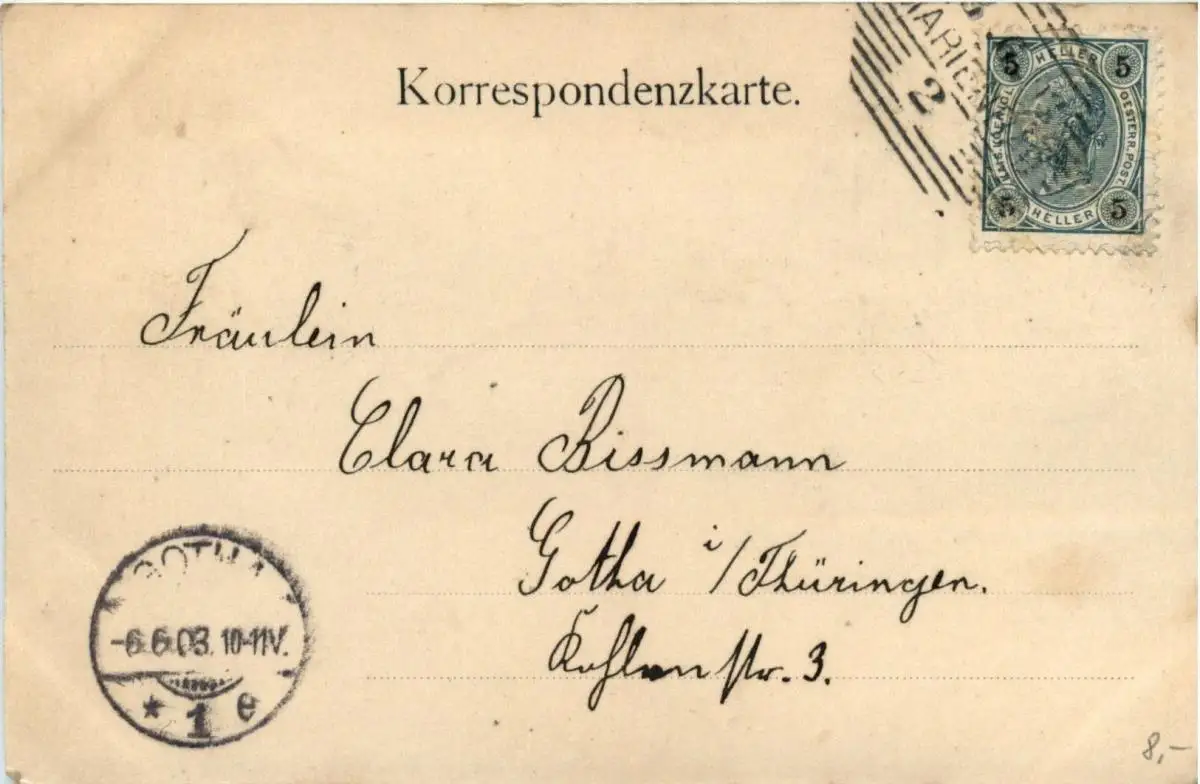 Korrespondenzkarte.
MARIEN
2
5 HELLER 5
KAIS. KOENIGL. OESTERR. POST
5 HELLER 5
Fräulein
Clara Bissmann
Gotha i/Thüringen.
Kohlenstr. 3.
GOTHA
-6.6.03. 10-11V.
* 1 e
8,-